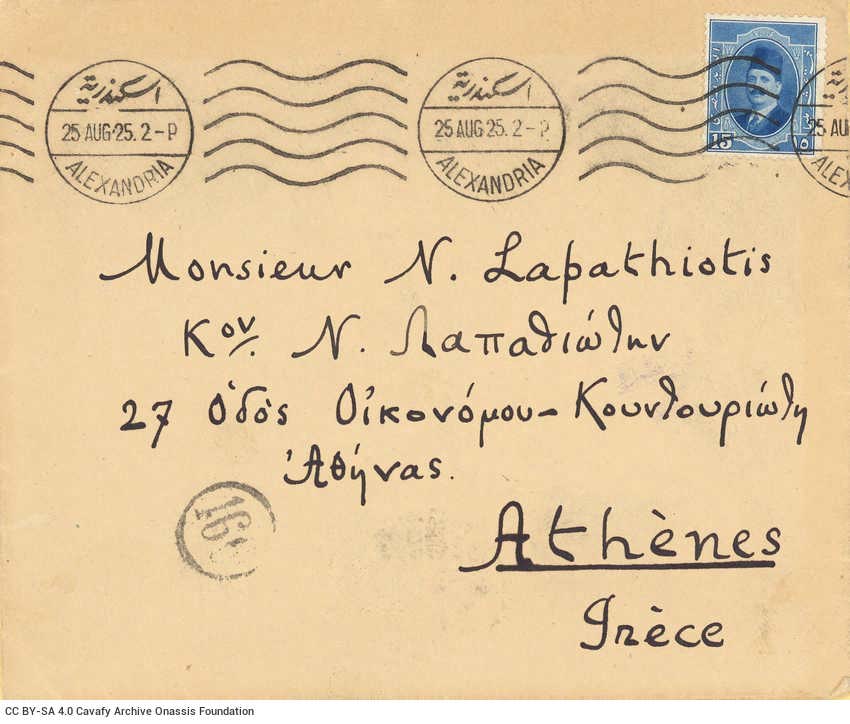 اسكندرية اسكندرية
25 AUG 25. 2-P 25 AUG 25. 2-P 25 AU
ALEXANDRIA ALEXANDRIA ALEX
15 ١٥
Monsieur N. Lapathiotis
Κον. Ν. Λαπαθιώτην
27 Ὁδὸς Οἰκονόμου-Κουντουριώτη
Ἀθήνας.
Athènes
Grèce
CC BY-SA 4.0 Cavafy Archive Onassis Foundation